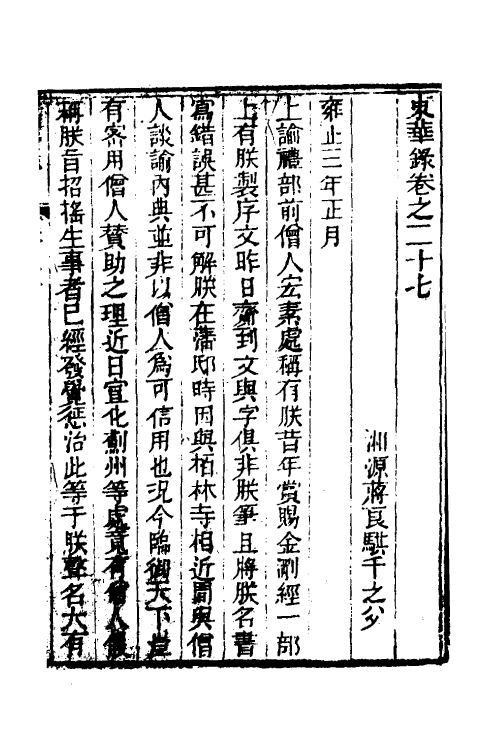 東華錄卷之二十七
湘源蔣良騏千之父
雍正三年正月
上諭禮部前僧人宏素處稱有朕昔年賞賜金剛經一部
上有朕製序文昨日齎到文與字俱非朕筆且將朕名書
寫錯誤甚不可解朕在藩邸時因與柏林寺相近閒與僧
人談論內典並非以僧人為可信用也況今臨御天下豈
有密用僧人贊助之理近日宣化薊州等處竟有僧人假
稱朕旨招搖生事者已經發覺懲治此等于朕聲名大有